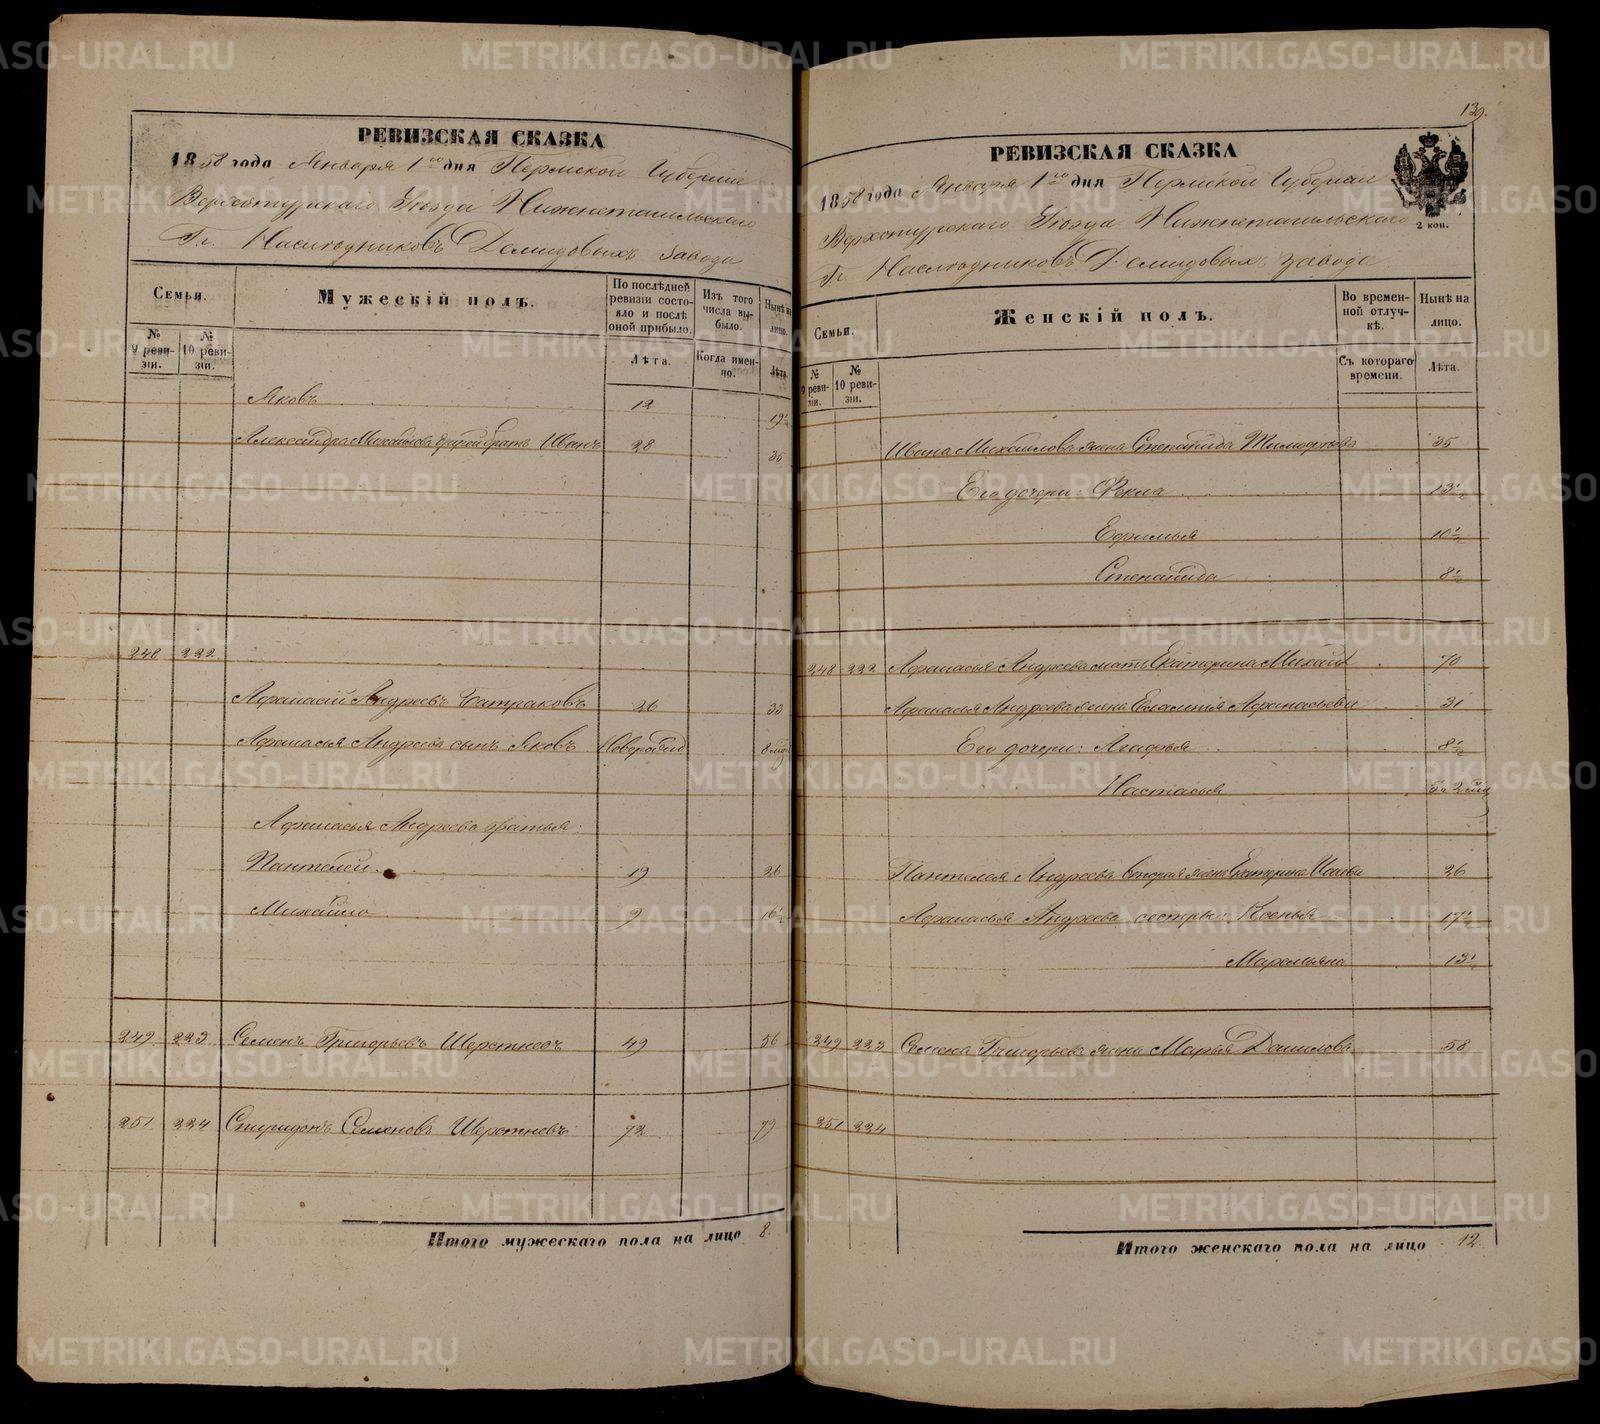 РЕВИЗСКАЯ СКАЗКА
1858 года Января 1го дня Пермской Губернии
Верхотурскаго Уезда Нижнетагильскаго
Гг. Наследниковъ Демидовыхъ завода
Семьи.
№ 9 ревизіи.
№ 10 ревизіи.
Мужескій полъ.
По послѣдней ревизіи состояло и послѣ оной прибыло.
Лѣта.
Изъ того числа выбыло.
Когда именно.
Нынѣ на лицо.
Лѣта.
Яковъ 12 19½
Александра Михайлова другой братъ Иванъ 28 35
248 222
Афанасій Андреевъ Батраковъ 26 33
Афанасья Андреева сынъ Яковъ Новорожд 8 мѣс
Афанасья Андреева братья:
Пантелей 19 26
Михайло 9 16½
249 223 Семенъ Григорьевъ Шерстневъ 49 56
251 224 Спиридонъ Семеновъ Шерстневъ 72 79
Итого мужескаго пола на лицо 8.
139.
РЕВИЗСКАЯ СКАЗКА
1858 года Января 1го дня Пермской Губернии
Верхотурскаго Уезда Нижнетагильскаго
Гг. Наследниковъ Демидовыхъ завода
2 коп.
Семьи.
№ 9 ревизіи.
№ 10 ревизіи.
Женскій полъ.
Во временной отлучкѣ.
Съ котораго времени.
Нынѣ на лицо.
Лѣта.
Ивана Михайлова жена Степанида Тимофеева 35
Его дочери: Фекла 13½
Ефимья 10½
Степанида 8½
248 222 Афанасья Андреева мать Екатерина Михайл 70
Афанасья Андреева жена Евлампія Афанасьевы 31
Его дочери: Агафья 8½
Настасья
Пантелея Андреева вторая жена Екатерина 26
Афанасья Андреева сестры: Ксенья 17½
Маремьяна 13½
249 223 Семена Григорьева жена Марья Данилова 58
251 224
Итого женскаго пола на лицо 12.
METRIKI.GASO-URAL.RU